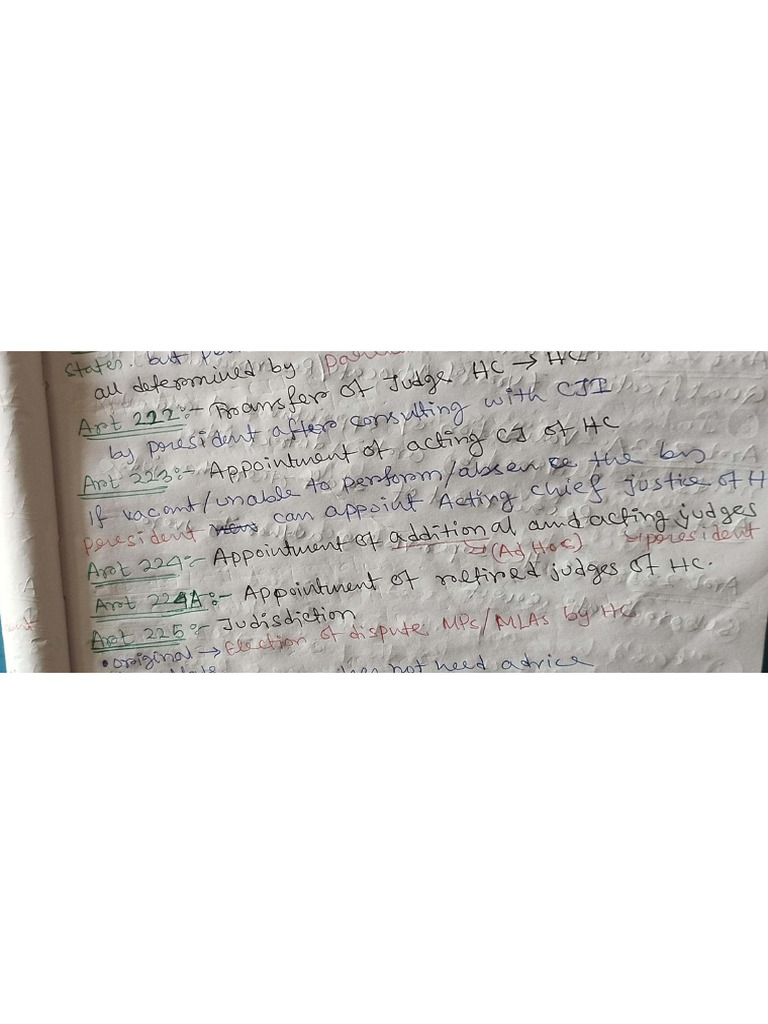 States. but
all determined by
Art 222:- Transfer of Judge HC → HC
by president after consulting with CJI
Art 223:- Appointment of acting CJ of HC
If vacant/unable to perform/absence the by
president can appoint Acting chief justice of H
Art 224:- Appointment of additional and acting judges
(Ad Hoc) president
Art 224A:- Appointment of retired judges of HC.
Art 225:- Judisdiction
• original → Election of dispute MPs/MLAs by HC
not need advice